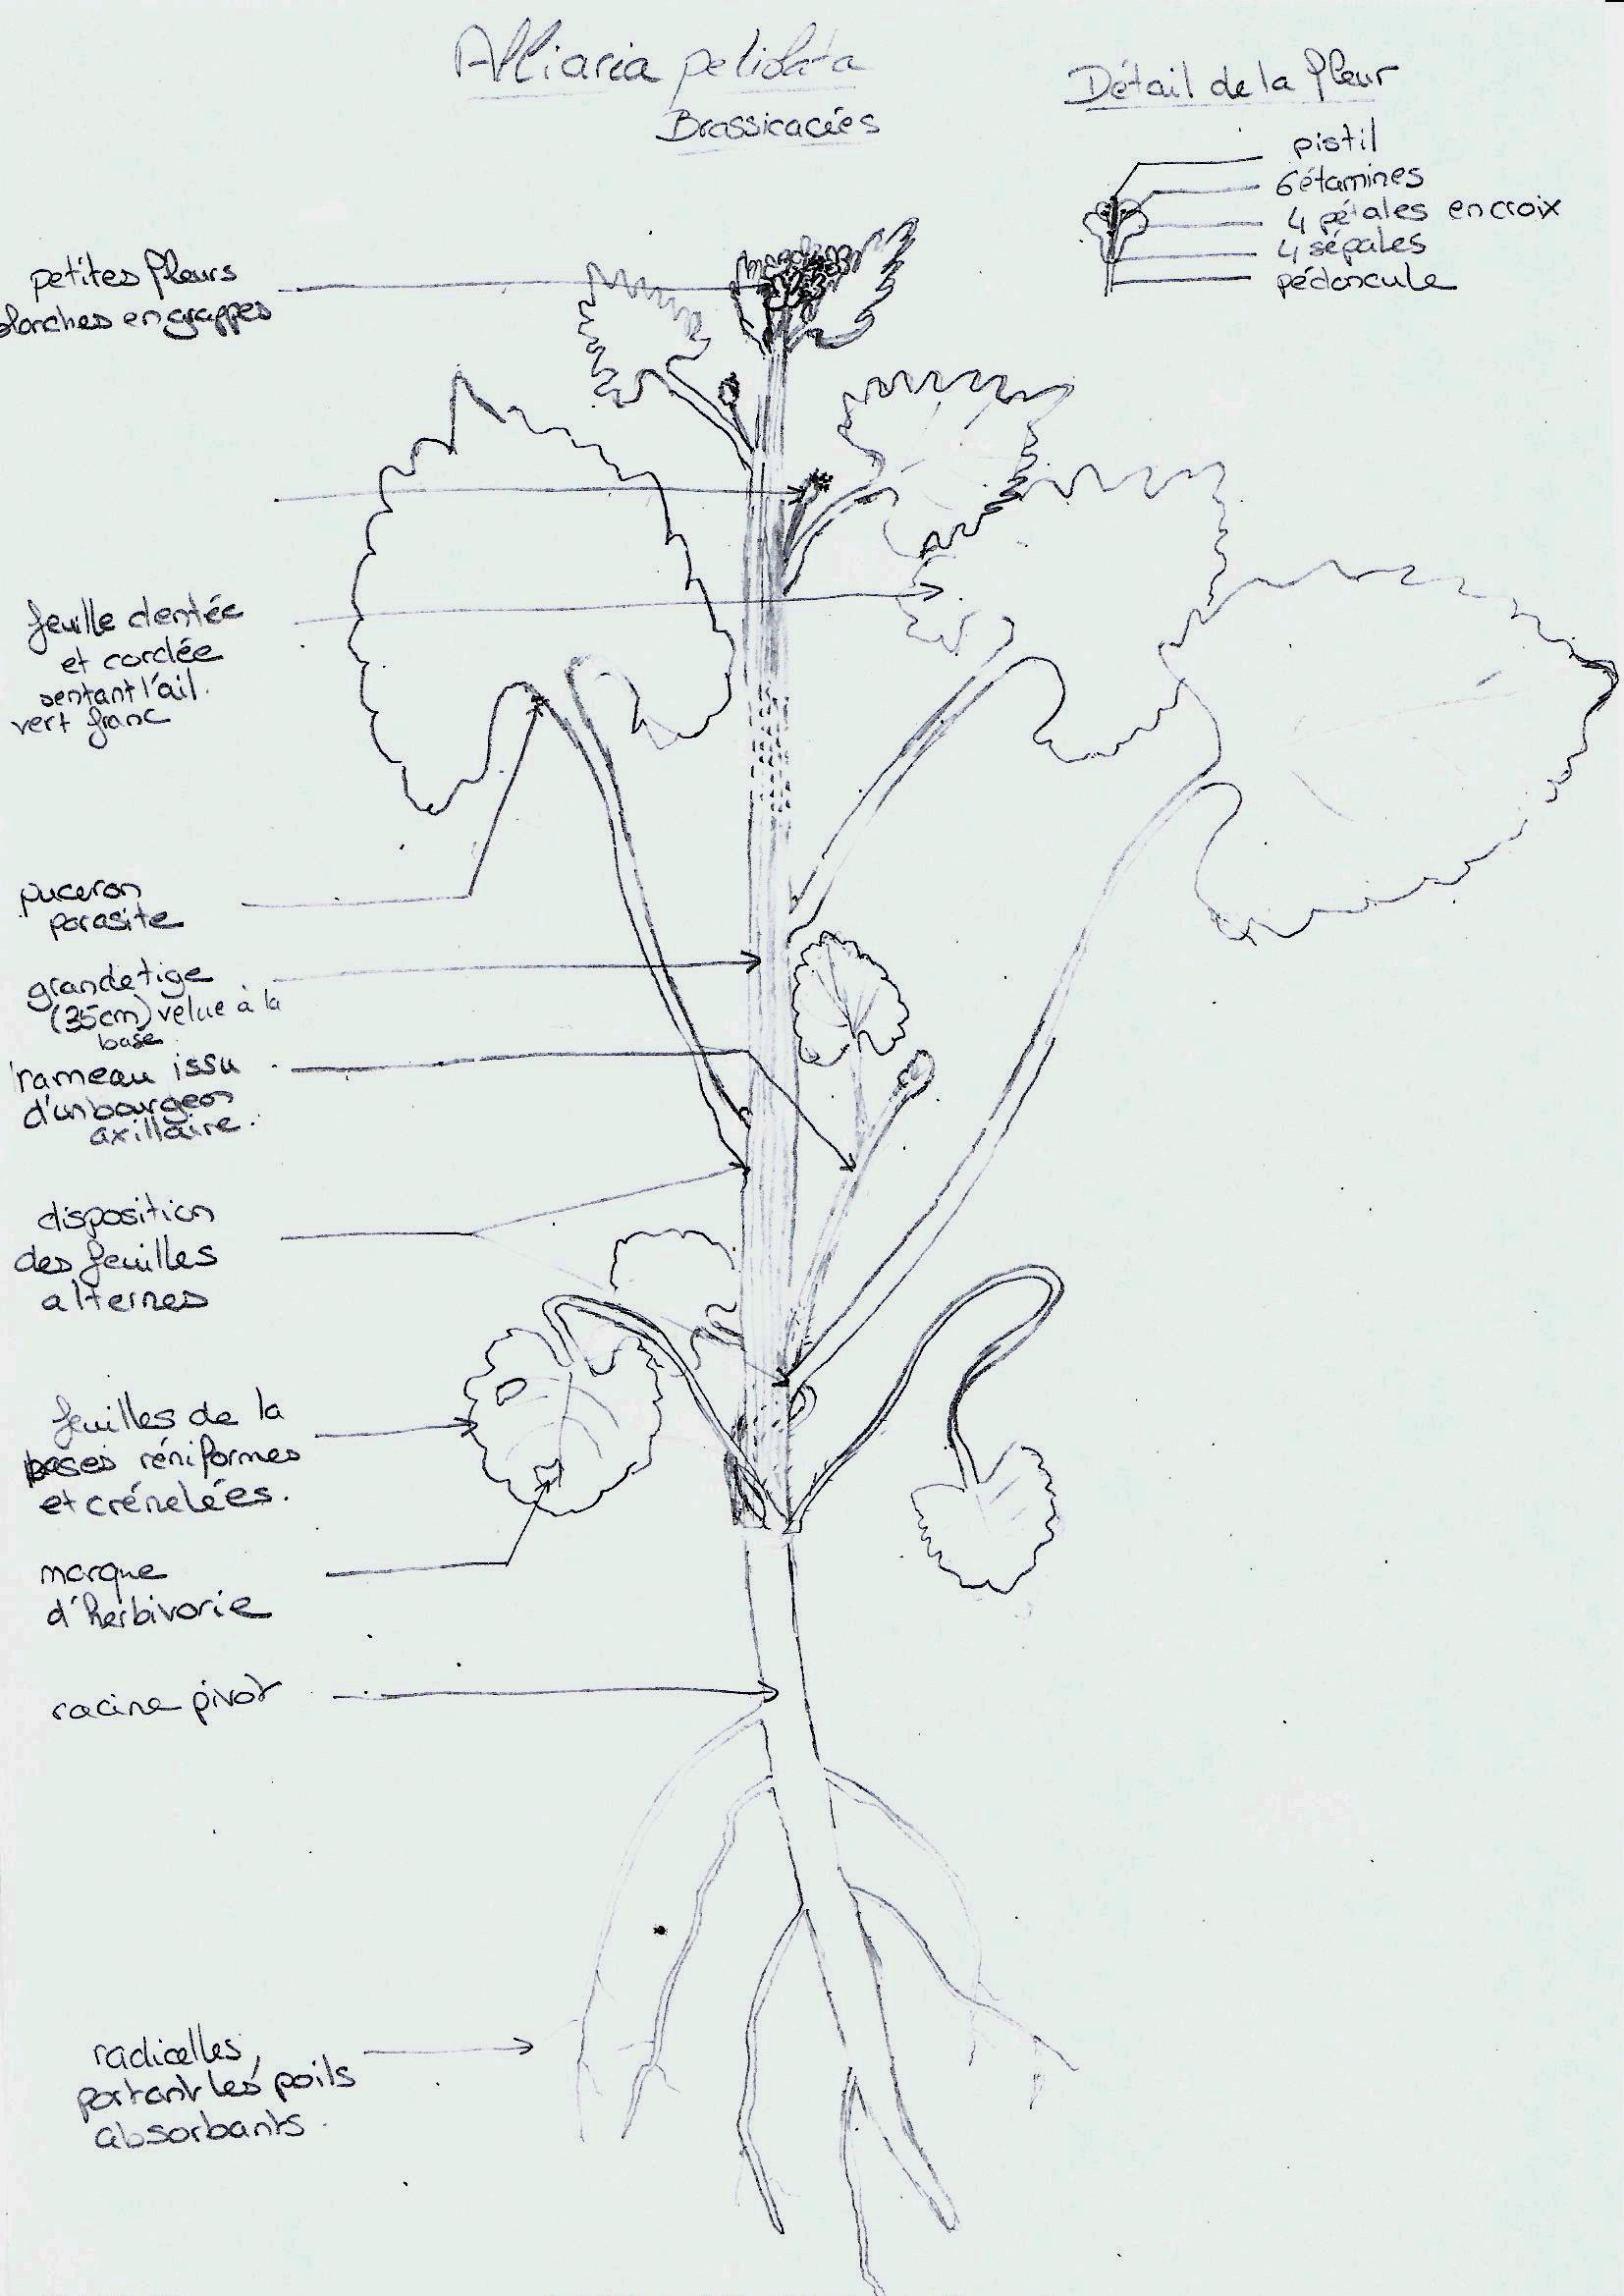 Alliaria petiolata
Brassicacées
Détail de la fleur
pistil
6 étamines
4 pétales en croix
4 sépales
pédoncule
petites fleurs
blanches en grappes
feuille dentée
et cordée
sentant l'ail.
vert franc
puceron
parasite
grande tige
(35cm) velue à la
base
rameau issu
d'un bourgeon
axillaire.
disposition
des feuilles
alternes
feuilles de la
bases réniformes
et crénelées.
marque
d'herbivorie
racine pivot
radicelles,
portant les poils
absorbants.